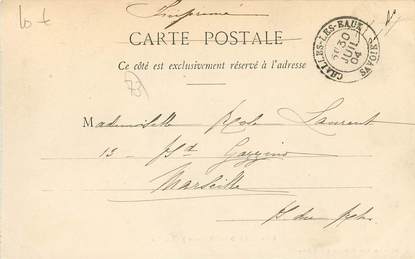 10 €
Imprimé
CARTE POSTALE
Ce côté est exclusivement réservé à l'adresse
CHALLES-LES-EAUX SAVOIE
30
JUIL
04
73
Mademoiselle Laurent
13
Marseille
B. du Rh.